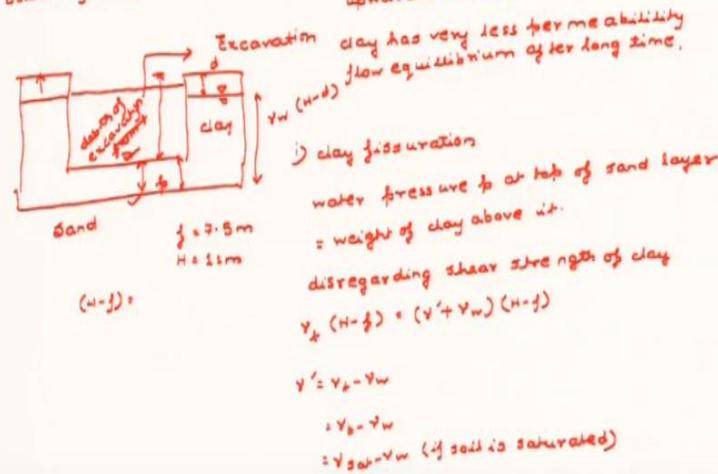 Excavation clay has very less permeabilility
flow equilibrium after long time.
d
depth of
excavation
from
clay
γw (H-d)
p
Sand
f = 7.5m
H = 11m
(H-f) =
i) clay fissuration
water pressure p at top of sand layer
= weight of clay above it.
disregarding shear strength of clay
γt (H-f) = (γ'+ γw) (H-f)
γ' = γt - γw
= γb - γw
= γsat - γw (if soil is saturated)